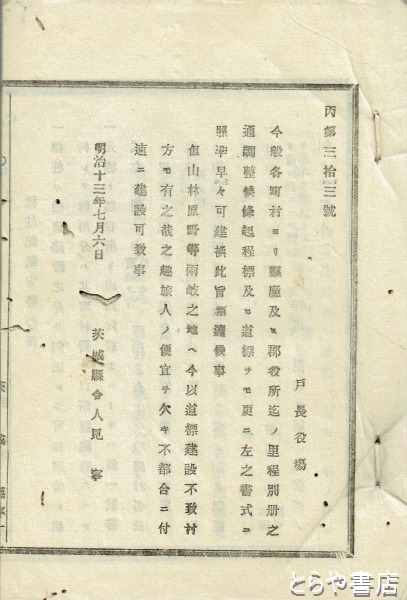 丙第三拾三號
戸長役場
今般各町村ヨリ縣廳及ヒ郡役所迄ノ里程別册之
通調整候條起程標及ヒ道標ヲモ更ニ左之書式ニ
照準早々可建換此旨相達候事
但山林原野等兩岐之地ヘ今以道標建設不致村
方モ有之哉之趣旅人ノ便宜ヲ欠キ不都合ニ付
速ニ建設可致事
明治十三年七月六日
茨城縣令人見寧
とらや書店